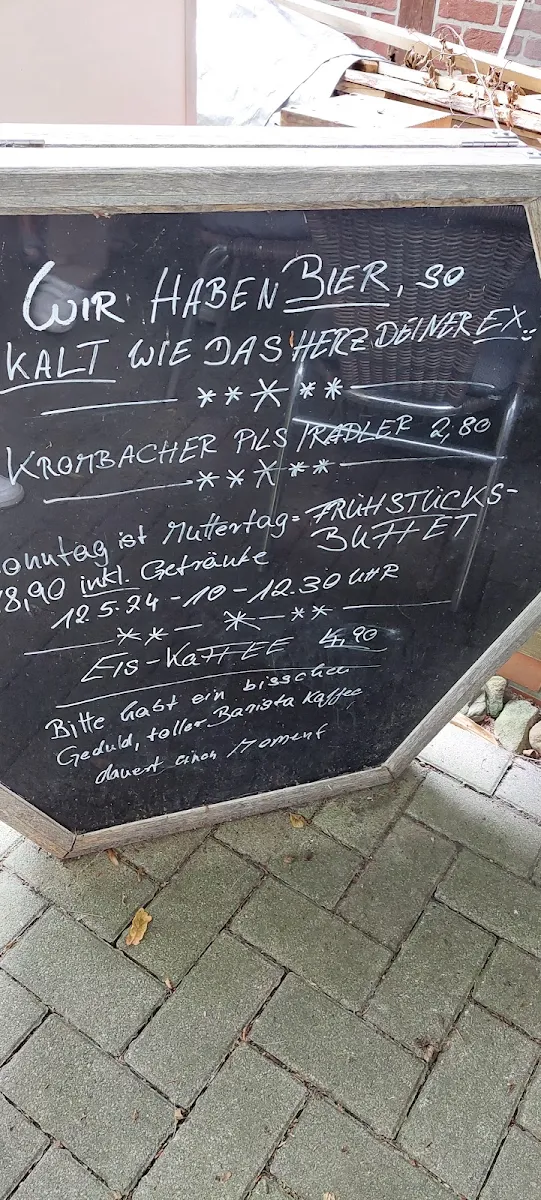 WIR HABEN BIER, SO
KALT WIE DAS HERZ DEINER EX
KROMBACHER PILS / RADLER 2,80
onntag ist Muttertag = FRÜHSTÜCKS-
BUFFET
8,90 inkl. Getränke
12.5.24 - 10 - 12.30 UHR
EIS-KAFFEE 4,90
Bitte habt ein bisschen
Geduld, toller Barista Kaffee
dauert einen Moment